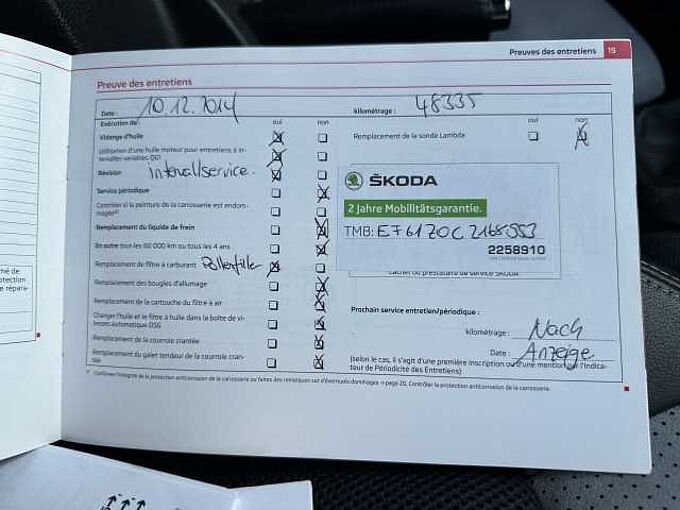 Preuves des entretiens 19
Preuve des entretiens
Date : 10.12.2014
kilométrage : 48335
Exécution de oui non
oui non
Vidange d'huile
Remplacement de la sonde Lambda
Utilisation d'une huile moteur pour entretiens à in-
tervalles variables QG1
Révision Intervallservice.
Service périodique
Contrôler si la peinture de la carrosserie est endom-
magée
Remplacement du liquide de frein
En outre tous les 60 000 km ou tous les 4 ans
Remplacement du filtre à carburant Pollenfilter
Remplacement des bougies d'allumage
Remplacement de la cartouche du filtre à air
Changer l'huile et le filtre à huile dans la boîte de vi-
tesses automatique DSG
Remplacement de la courroie crantée
Remplacement du galet tendeur de la courroie cran-
tée
ŠKODA
2 Jahre Mobilitätsgarantie.
TMB:
2258910
Cachet du prestataire de service ŠKODA
Prochain service entretien/périodique :
kilométrage : Nach
Date : Anzeige
(selon le cas, il s'agit d'une première inscription ou d'une mention par l'Indica-
teur de Périodicité des Entretiens)
Confirmer l'intégrité de la protection anticorrosion de la carrosserie ou faites des remarques sur d'éventuels dommages → page 20, Contrôler la protection anticorrosion de la carrosserie.